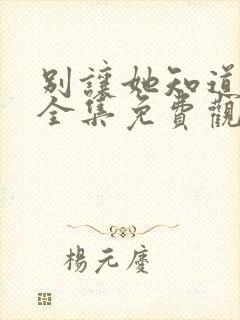 別讓她知道
全集免費觀
楊元慶